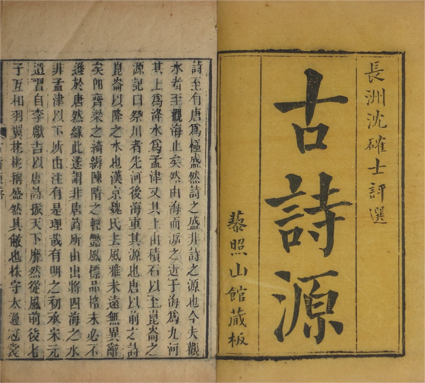 長洲沈確士評選
古詩源
藜照山館藏板
詩至有唐爲極盛然詩之盛非詩之源也今夫觀
水者至觀海止矣然由海而遡之近于海爲九河
其上爲洚水爲孟津又其上由積石以至崑崙之
源記曰祭川者先河後海重其源也唐以前之詩
崑崙以降之水也漢京魏氏去風雅未遠無異辭
矣即齊梁之綺縟陳隋之輕艷風標品格未必不
遜於唐然緣此遂謂非唐詩所由出將四海之水
非孟津以下所由注有是理哉有明之初承宋元
遺習自李獻吉以唐詩振天下靡然從風前後七
子互相羽翼彬彬稱盛然其敝也株守太過冠裳